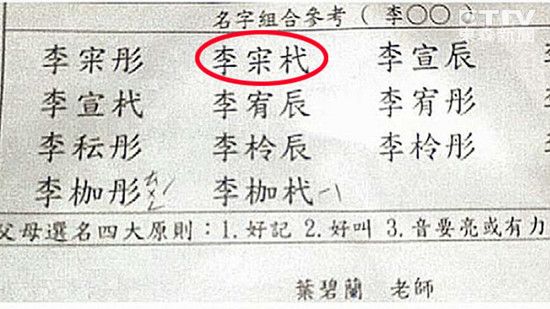 名字組合參考（李○○）
李彤 李杙 李宣辰
李宣杙 李宥辰 李宥彤
李耘彤 李柃辰 李柃彤
李枷彤 李枷杙
父母選名四大原則：1.好記 2.好叫 3.音要亮或有力
葉碧蘭 老師